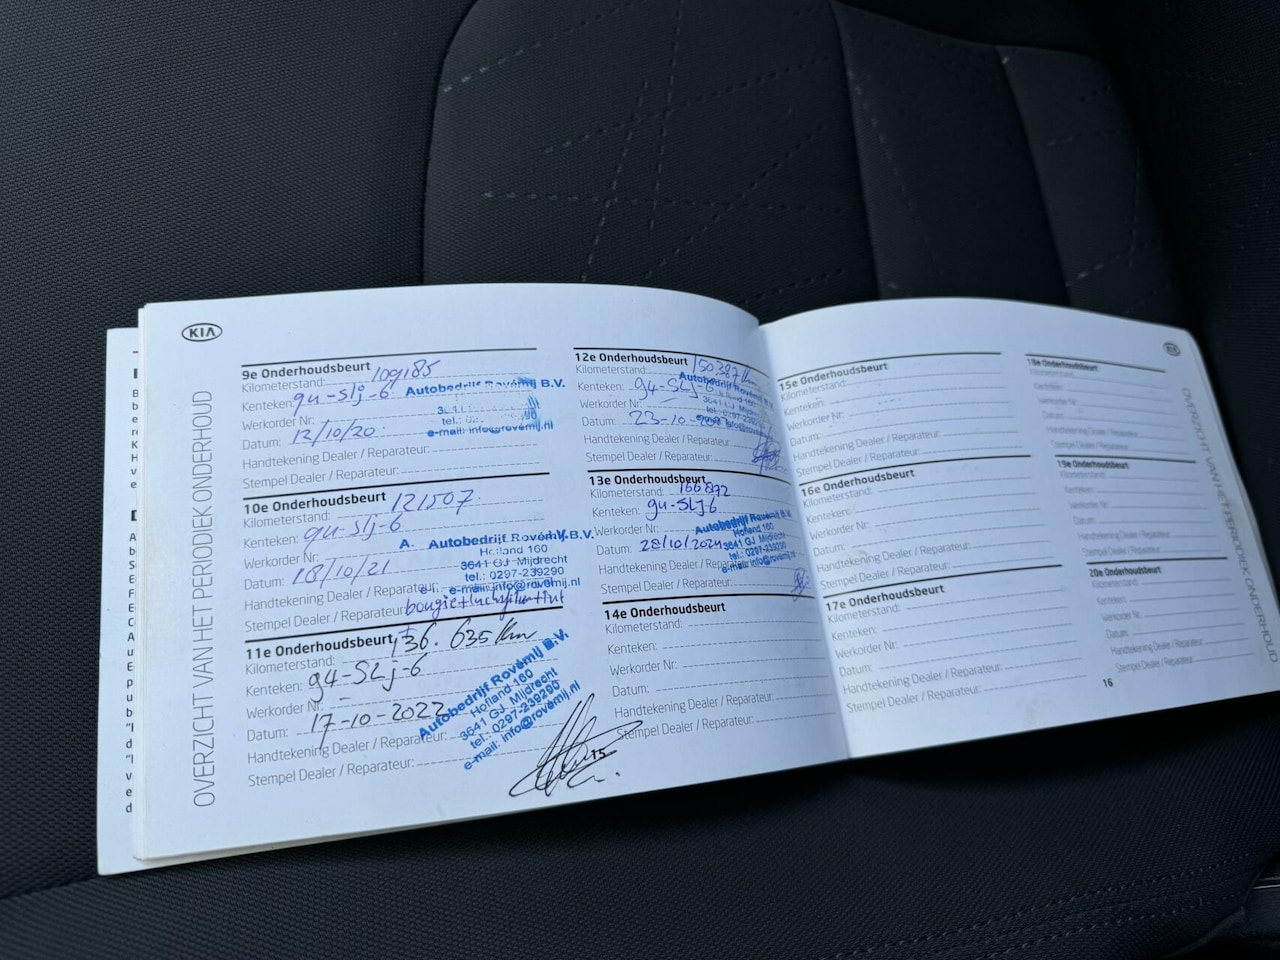 KIA
OVERZICHT VAN HET PERIODIEK ONDERHOUD
9e Onderhoudsbeurt
Kilometerstand: 109185
Kenteken: 94-SLJ-6
Autobedrijf Rovémij B.V.
Werkorder Nr:
Datum: 12/10/20
e-mail: info@rovémij.nl
Handtekening Dealer / Reparateur:
Stempel Dealer / Reparateur:
10e Onderhoudsbeurt
Kilometerstand: 121507
Kenteken: 94-SLJ-6
Werkorder Nr:
Autobedrijf Rovémij B.V.
Holland 160
3641 GJ Mijdrecht
tel.: 0297-239290
e-mail: info@rovémij.nl
Datum: 18/10/21
Handtekening Dealer / Reparateur:
Stempel Dealer / Reparateur: bougie+luchtfilter+int
11e Onderhoudsbeurt
Kilometerstand: 136.635 km
Kenteken: 94-SLJ-6
Werkorder Nr: -
Datum: 17-10-2022
Autobedrijf Rovémij B.V.
Holland 160
3641 GJ Mijdrecht
tel.: 0297-239290
e-mail: info@rovémij.nl
Handtekening Dealer / Reparateur:
Stempel Dealer / Reparateur:
12e Onderhoudsbeurt
Kilometerstand: 150387 km
Kenteken: 94-SLJ-6
Autobedrijf Rovémij B.V.
Werkorder Nr: -
3641 GJ Mijdrecht
Datum: 23-10-
Handtekening Dealer / Reparateur:
Stempel Dealer / Reparateur:
13e Onderhoudsbeurt
Kilometerstand: 166872
Kenteken: 94-SLJ-6
Werkorder Nr:
Autobedrijf Rovémij B.V.
Holland 160
3641 GJ Mijdrecht
tel.: 0297-239290
e-mail: info@rovémij.nl
Datum: 28/10/2024
Handtekening Dealer / Reparateur:
Stempel Dealer / Reparateur:
14e Onderhoudsbeurt
Kilometerstand:
Kenteken:
Werkorder Nr:
Datum:
Handtekening Dealer / Reparateur:
Stempel Dealer / Reparateur:
15
15e Onderhoudsbeurt
Kilometerstand:
Kenteken:
Werkorder Nr:
Datum:
Handtekening Dealer / Reparateur:
Stempel Dealer / Reparateur:
16e Onderhoudsbeurt
Kilometerstand:
Kenteken:
Werkorder Nr:
Datum:
Handtekening Dealer / Reparateur:
Stempel Dealer / Reparateur:
17e Onderhoudsbeurt
Kilometerstand:
Kenteken:
Werkorder Nr:
Datum:
Handtekening Dealer / Reparateur:
Stempel Dealer / Reparateur:
Onderhoudsbeurt
Kilometerstand:
Kenteken:
Werkorder Nr:
Datum:
Handtekening Dealer / Reparateur:
Stempel Dealer / Reparateur:
19e Onderhoudsbeurt
Kilometerstand:
Kenteken:
Werkorder Nr:
Datum:
Handtekening Dealer / Reparateur:
Stempel Dealer / Reparateur:
20e Onderhoudsbeurt
Kilometerstand:
Kenteken:
Werkorder Nr:
Datum:
Handtekening Dealer / Reparateur:
Stempel Dealer / Reparateur:
16
KIA
OVERZICHT VAN HET PERIODIEK ONDERHOUD